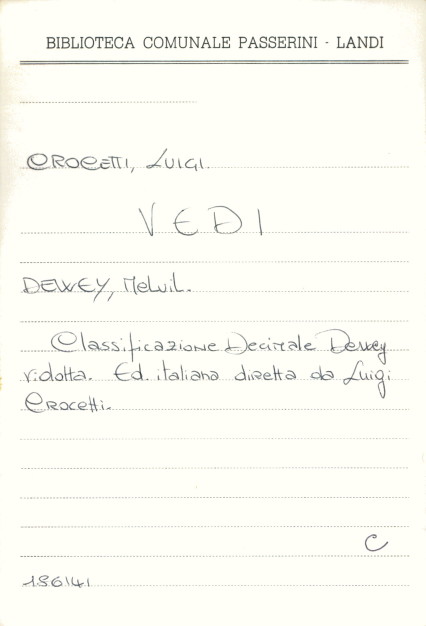 BIBLIOTECA COMUNALE PASSERINI - LANDI
CROCETTI, LUIGI.
VEDI
DEWEY, Melvil.
Classificazione Decimale Dewey
ridotta. Ed. italiana diretta da Luigi
Crocetti.
C
186141